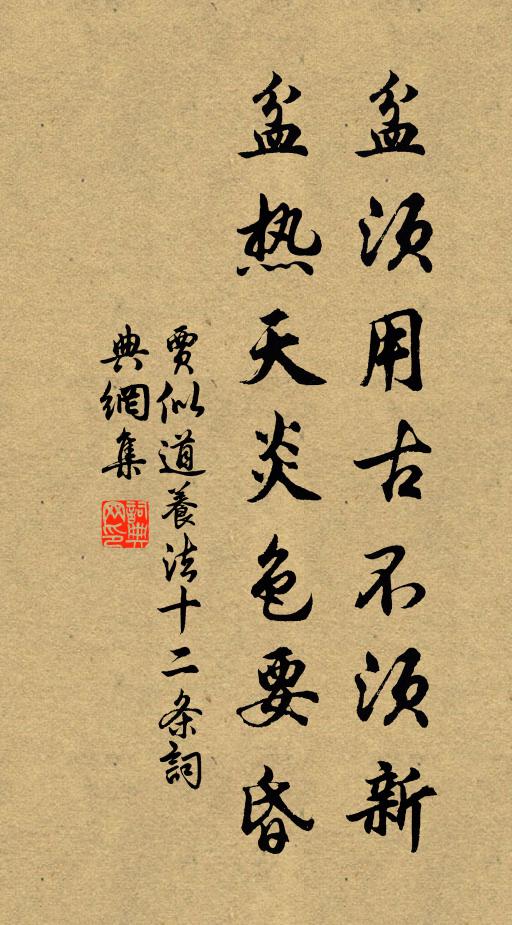 盆须用古不须新
盆热天炎色要昏
贾似道養法十二条詞
典網集
詞典网印